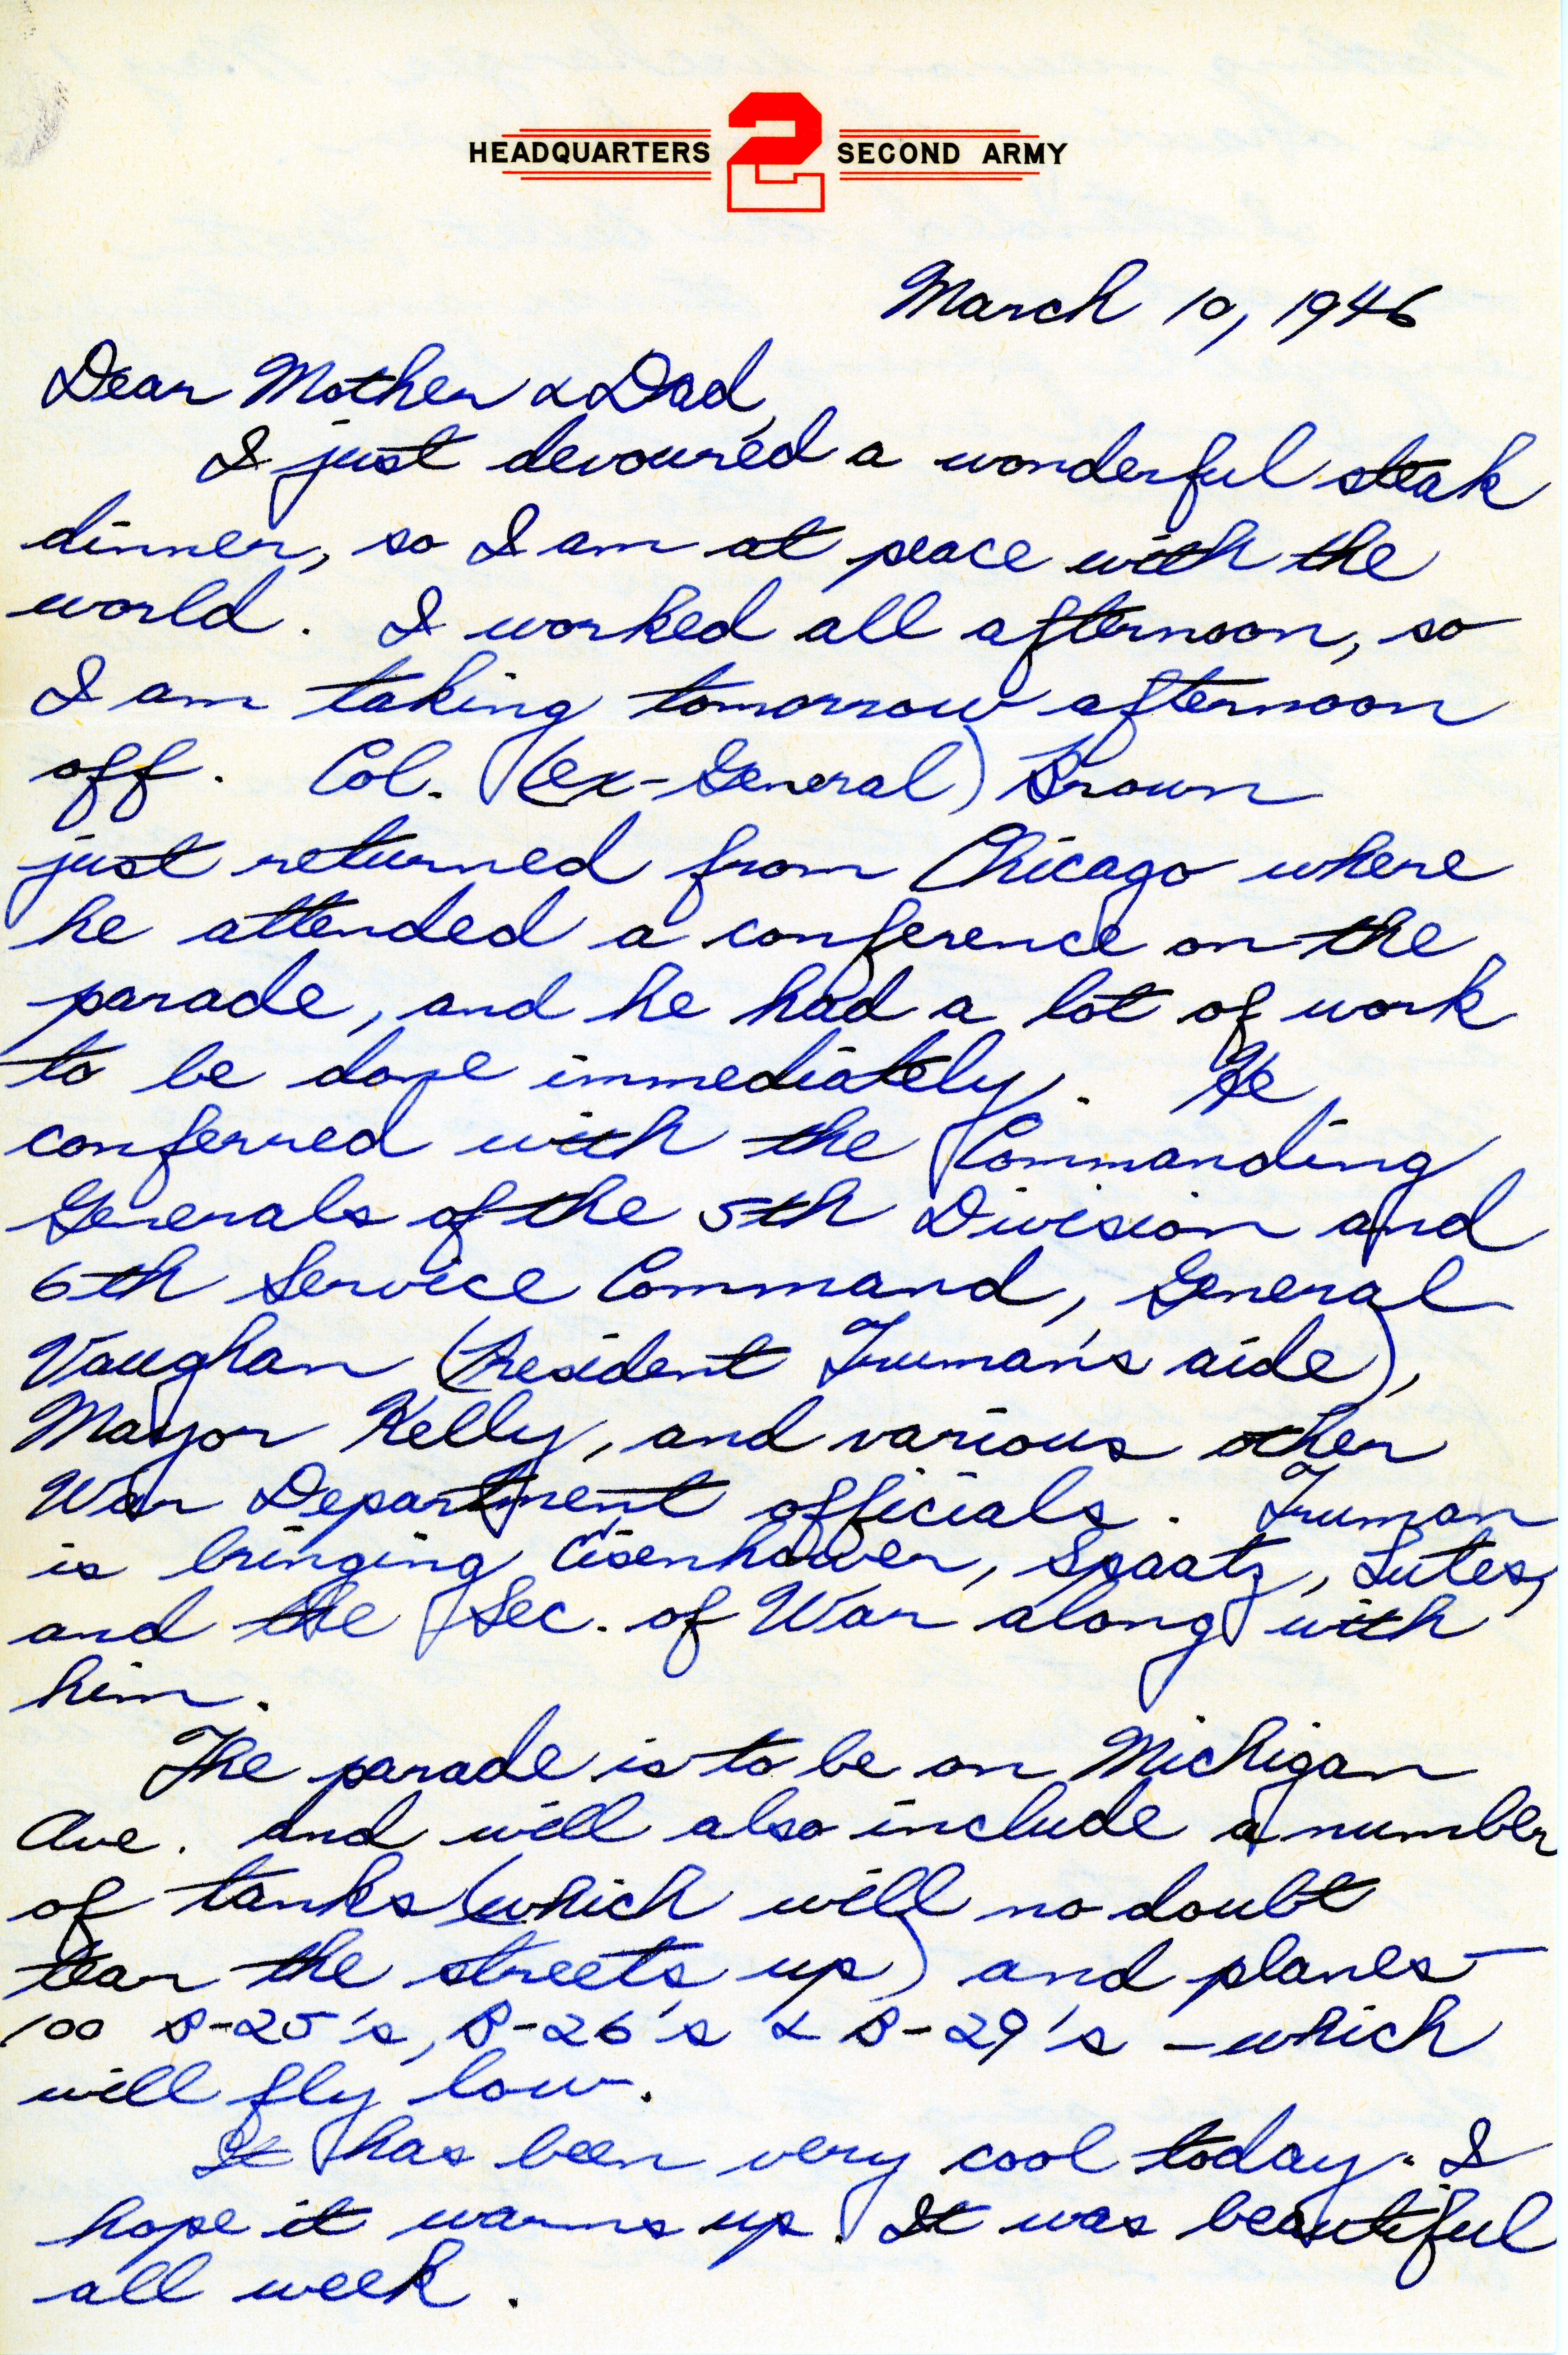 HEADQUARTERS 2 SECOND ARMY
March 10, 1946
Dear Mother & Dad,
I just devoured a wonderful steak
dinner, so I am at peace with the
world. I worked all afternoon, so
I am taking tomorrow afternoon
off. Col. (ex-General) Brown
just returned from Chicago where
he attended a conference on the
parade, and he had a lot of work
to be done immediately. He
conferred with the Commanding
Generals of the 5th Division and
6th Service Command, General
Vaughan (President Truman's aide),
Mayor Kelly, and various other
War Department officials. Truman
is bringing Eisenhower, Spaatz, Lutes,
and the Sec. of War along with
him.
The parade is to be on Michigan
Ave. and will also include a number
of tanks (which will no doubt
tear the streets up) and planes –
100 B-25's, B-26's & B-29's – which
will fly low.
It has been very cool today. I
hope it warms up. It was beautiful
all week.